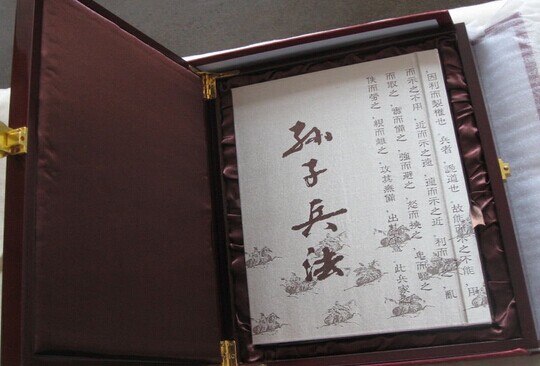 因利而製權也，兵者，詭道也，故能而示之不能，用
而示之不用，近而示之遠，遠而示之近，利而之，亂
而取之，實而備之，強而避之，怒而撓之，而之
佚而勞之，親而離之，攻其無備，出，此兵家
孙子兵法